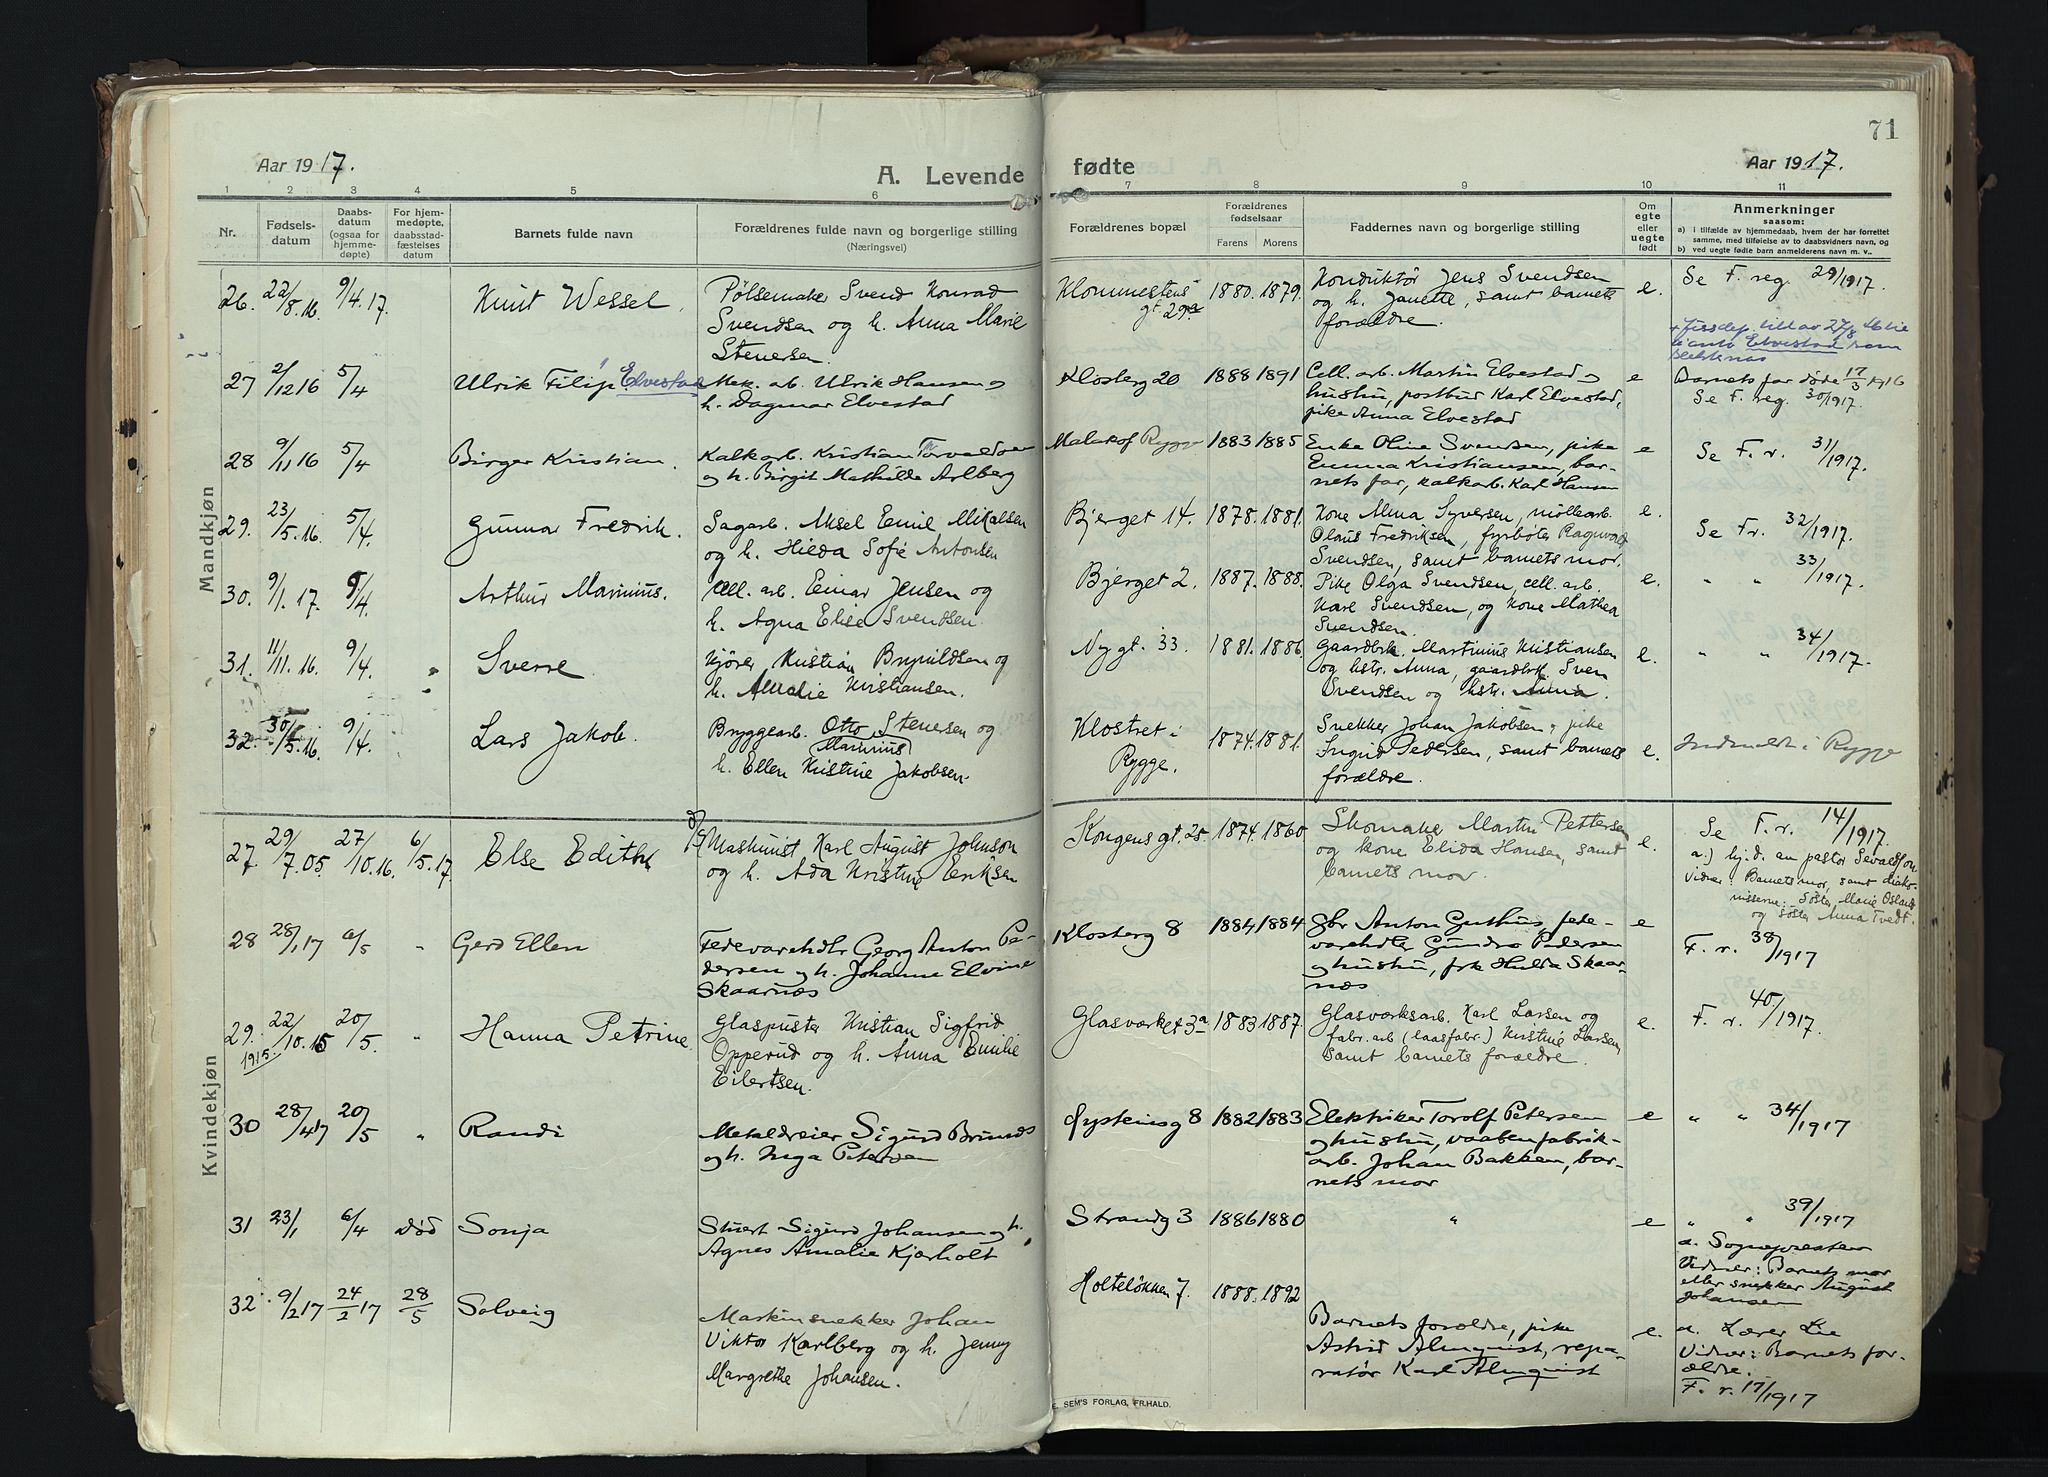 71
Aar 1917.
A. Levende fødte
Aar 1917.
1 2 3 4 5 6 7 8 9 10 11
Nr.
Fødsels-
datum
Daabs-
datum
(ogsaa for
hjemme-
døpte)
For hjem-
medøpte,
daabsstad-
fæstelses
datum
Barnets fulde navn
Forældrenes fulde navn og borgerlige stilling
(Næringsvei)
Forældrenes bopæl
Forældrenes
fødselsaar
Farens Morens
Faddernes navn og borgerlige stilling
Om
egte
eller
uegte
født
Anmerkninger
saasom:
a) i tilfælde av hjemmedaab, hvem der har forrettet
samme, med tilføielse av to daabsvidners navn, og
b) ved uegte fødte barn anmelderens navn m. v..
Mandkjøn
26. 22/8.16. 9/4.17. Knut Wessel.
Pølsemaker Svend Konrad
Svendsen og h. Anna Marie
Stenersen.
29 1880. 1879.
Konduktør Jens Svendsen
og h. Janette, samt barnets
forældre.
e.
Se F. reg. 29/1917.
27 2/12 16 5/4 Ulrik Filip Elvestad
Mek. arb. Ulrik Hansen og
h. Dagmar Elvestad
Klosterg 20 1888 1891
Cell. arb. Martin Elvestad og
hustru, postbud Karl Elvestad,
pike Anna Elvestad
e
Elvestad som
Barnets far døde 17/3 1916
Se F. reg. 30/1917.
28 9/11 16 5/4 Birger Kristian.
Kalkarb. Kristian Torvaldsen
og h. Birgit Mathilde Arlberg
Malakof Rygge 1883 1885
Enke Oline Svendsen, pike
Emma Kristiansen, bar-
nets far, kalkarb. Karl Hansen
e
Se F. r. 31/1917.
29. 23/5.16. 5/4. Gunnar Fredrik.
Sagarb. Aksel Emil Mikalsen
og h. Hilda Sofie Antonsen
Bjerget 14. 1878. 1881.
Kone Alma Syversen, møllearb.
Olaus Fredriksen, fyrbøter Ragnvald
Svendsen, samt barnets mor.
e.
Se F.r. 32/1917.
30. 9/1.17. 5/4. Arthur Marinius.
Cell. arb. Einar Jensen og
h. Agna Elise Svendsen.
Bjerget 2. 1887. 1888.
Pike Olga Svendsen, cell. arb.
Karl Svendsen, og kone Mathea
Svendsen.
e.
" " 33/1917.
31. 11/11.16. 9/4. " Sverre
Kjører Kristian Brynildsen og
h. Amalie Kristiansen.
Nygt. 33. 1881. 1886.
Gaardbrk. Martinius Kristiansen
og hstr. Anna, gaardbrk. Sven
Svendsen og hstr. Anna.
e.
" " 34/1917.
32. 30/5.16. 9/4. Lars Jakob.
Bryggearb. Otto Stenersen og
Marinius
h. Ellen Kristine Jakobsen.
Klostret i
Rygge.
1874. 1881.
Snekker Johan Jakobsen, pike
Ingrid Pedersen, samt barnets
forældre.
e.
Indmeldt i Rygge
Kvindekjøn
27. 29/7.05. 27/10.16. 6/5.17. Else Edith
Maskinist Karl August Johnson
og h. Ada Kristine Eriksen
Kongens gt. 25. 1874. 1860
Skomaker Martin Pettersen
og kone Elida Hansen, samt
barnets mor.
e.
Se F.r. 14/1917.
a.) hj.d. av pastor Sevaldson
Vidner: Barnets mor, samt diako-
nisserne: Søster Marie Osland
og søster Anna Tvedt.
28 28/1 17 6/5 " Gerd Ellen
Fedevarehdlr Georg Anton Pe-
dersen og h. Johanne Elvine
Skaarnæs
Klosterg 8 1884 1884
Gbr Anton Guthus, fede-
varehdler Gundro Pedersen
og hustru, frk Hulda Skaar-
næs
e
F. r. 38/1917
29. 22/10.15 20/5. " Hanna Petrine
1915.
Glaspuster Kristian Sigfrid
Opperud og h. Anna Emilie
Eilertsen.
Glasverket 3a 1883 1887.
Glasverksarb. Karl Larsen og
fabr. arb (laasfabr.) Kristine Larsen,
samt barnets forældre.
e.
F. r. 40/1917.
30 28/4 17 20/5 " Randi
Metaldreier Sigurd Brunæs
og h. Inga Petersen
Øysteinsg 8 1882 1883
Elektriker Torolf Petersen
og hustru, vaabenfabrik-
arb. Johan Bakken, bar-
nets mor
e
" " 34/1917
31 23/1 6/4 Død Sonja
Stuert Sigurd Johansen og h.
Agnes Amalie Kjærholt
Strandg 3 1886 1880
"
e
" " 39/1917
a. Sognepresten
Vidner: Barnets mor
eller snekker August
Johansen
32. 9/2 17 24/2 17 28/5 Solveig
Maskinsnekker Johan
Viktor Karlberg og h. Jenny
Margrethe Johansen.
Holteløkken 7. 1888. 1892
Barnets forældre, pike
Astrid Almquist, repa-
ratør Karl Almquist
e.
a. Lærer Lie
Vidner: Barnets for-
ældre.
F. r. 17/1917
E. SEM'S FORLAG, FR.HALD.